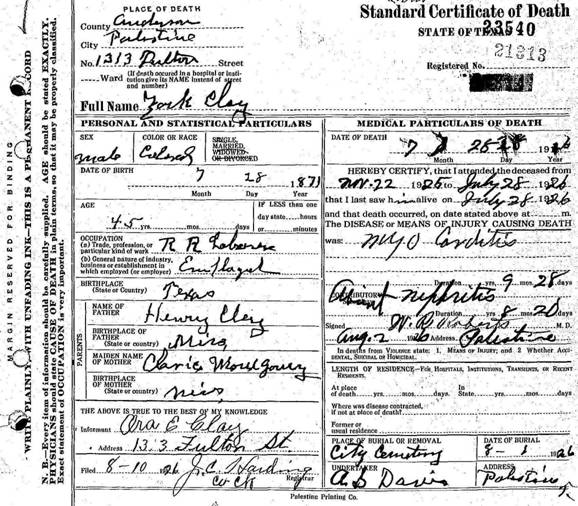 PLACE OF DEATH
County Anderson
City Palestine
No. 1313 Fulton Street
Ward (If death occured in a hospital or institution give its NAME instead of street and number)
Full Name York Clay
Standard Certificate of Death
STATE OF TEXAS
23540
21313
Registered No.
MARGIN RESERVED FOR BINDING
WRITE PLAINLY—WITH UNFADING INK—THIS IS A PERMANENT RECORD
N. B.—Every item of information should be carefully supplied. AGE should be stated EXACTLY.
PHYSICIANS should state CAUSE OF DEATH in plain terms, so that it may be properly classified.
Exact statement of OCCUPATION is very important.
PERSONAL AND STATISTICAL PARTICULARS
SEX
male
COLOR OR RACE
Colored
SINGLE,
MARRIED,
WIDOWED
OR DIVORCED
DATE OF BIRTH
7 28 1871
Month Day Year
AGE
45 yrs. mos. days
IF LESS than one
day state hours
or minutes
OCCUPATION
(a) Trade, profession, or
particular kind of work R R Laborer
(b) General nature of industry,
business or establishment in
which employed (or employer) Employed
BIRTHPLACE
(State or Country) Texas
PARENTS
NAME OF
FATHER Henry Clay
BIRTHPLACE OF
FATHER
(State or country) Miss
MAIDEN NAME
OF MOTHER Montgomery
BIRTHPLACE
OF MOTHER
(State or country) Miss
THE ABOVE IS TRUE TO THE BEST OF MY KNOWLEDGE
Informant Ora E Clay
Address 13.3 Fulton St.
Filed 8-10 1926 J. C. Harding
Registrar
Co Ck
MEDICAL PARTICULARS OF DEATH
DATE OF DEATH
7 28 192
Month Day Year
I HEREBY CERTIFY, that I attended the deceased from
Nov. 22 1925 to July 28 1926
that I last saw him alive on July 28 1926
and that death occurred, on date stated above at m.
The DISEASE or MEANS OF INJURY CAUSING DEATH
was: Myo Carditis
Duration yrs. 9 mos. 28 days
CONTRIBUTORY nephritis
Duration yrs. 8 mos. 20 days
Signed W. Roberts M. D.
Aug. 2 1926 Address Palestine
In deaths from VIOLENCE state: 1, MEANS OF INJURY; and 2 Whether ACCIDENTAL, SUICIDAL OR HOMICIDAL.
LENGTH OF RESIDENCE—FOR HOSPITALS, INSTITUTIONS, TRANSIENTS, OR RECENT RESIDENTS.
At place
of death yrs. mos. days.
In
State yrs. mos. days
Where was disease contracted,
if not at place of death?
Former or
usual residence
PLACE OF BURIAL OR REMOVAL
City Cemetery
DATE OF BURIAL
8-1 1926
UNDERTAKER
A B Davis
ADDRESS
Palestine
Palestine Printing Co.